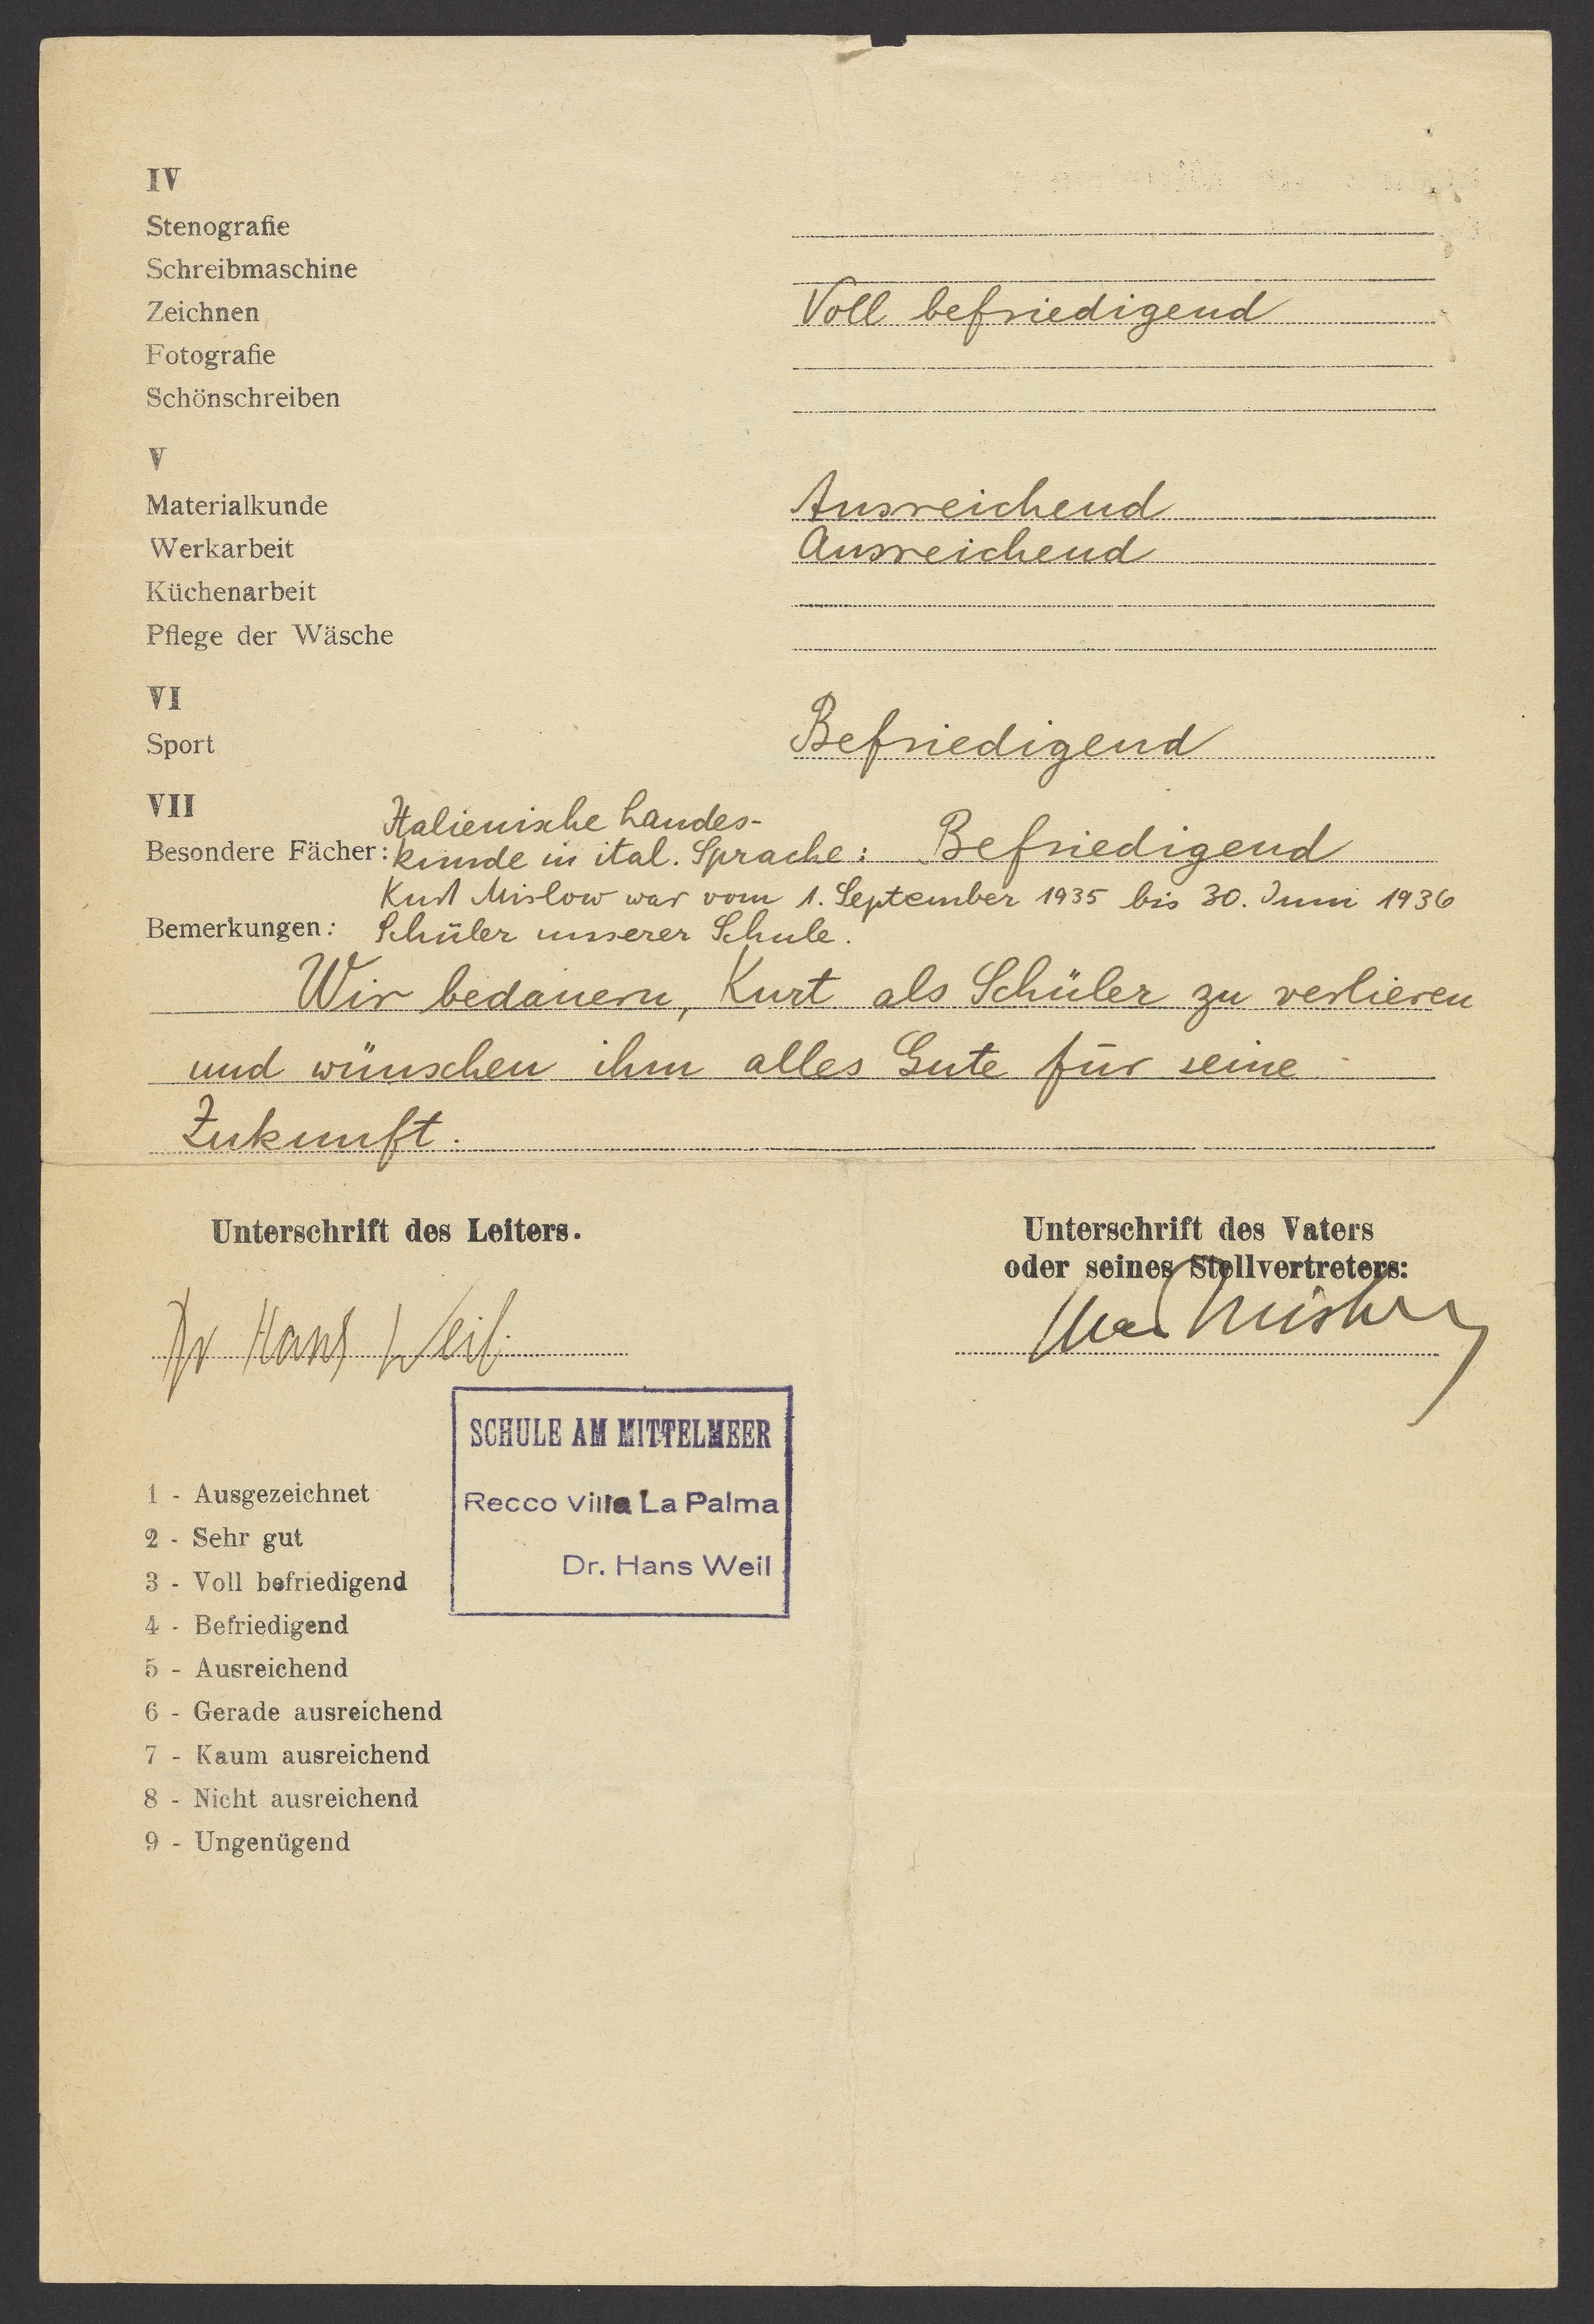 IV
Stenografie
Schreibmaschine
Zeichnen Voll befriedigend
Fotografie
Schönschreiben
V
Materialkunde Ausreichend
Werkarbeit Ausreichend
Küchenarbeit
Pflege der Wäsche
VI
Sport Befriedigend
VII
Italienische Landes-
Besondere Fächer: kunde in ital. Sprache: Befriedigend
Kurt Mislow war vom 1. September 1935 bis 30. Juni 1936
Bemerkungen: Schüler unserer Schule.
Wir bedauern, Kurt als Schüler zu verlieren
und wünschen ihm alles Gute für seine
Zukunft.
Unterschrift des Leiters.
Unterschrift des Vaters
oder seines Stellvertreters:
Dr Hans Weil.
Mislow
SCHULE AM MITTELMEER
Recco Villa La Palma
Dr. Hans Weil
1 - Ausgezeichnet
2 - Sehr gut
3 - Voll befriedigend
4 - Befriedigend
5 - Ausreichend
6 - Gerade ausreichend
7 - Kaum ausreichend
8 - Nicht ausreichend
9 - Ungenügend